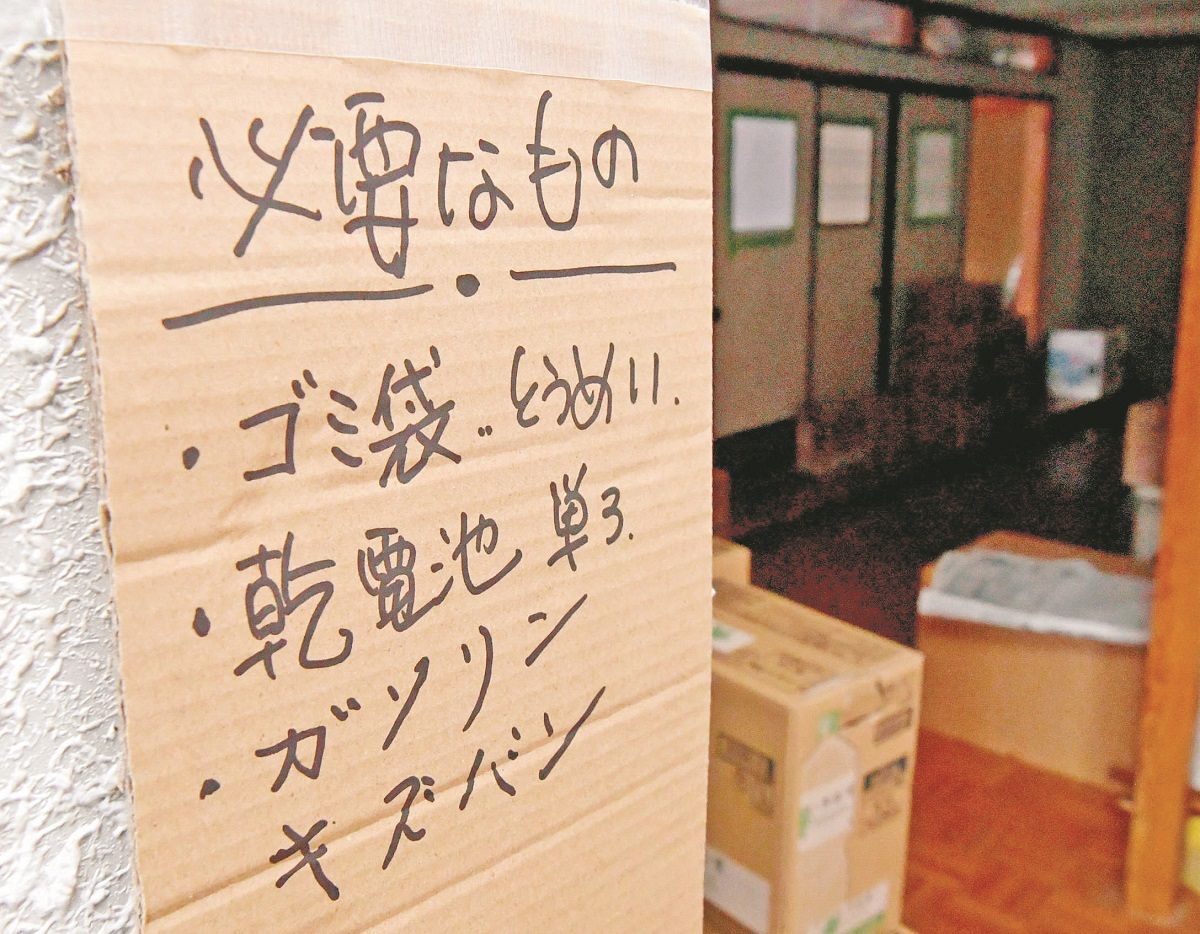 必要なもの
・ゴミ袋 とうめい.
・乾電池 単3.
・ガソリン
キズバン